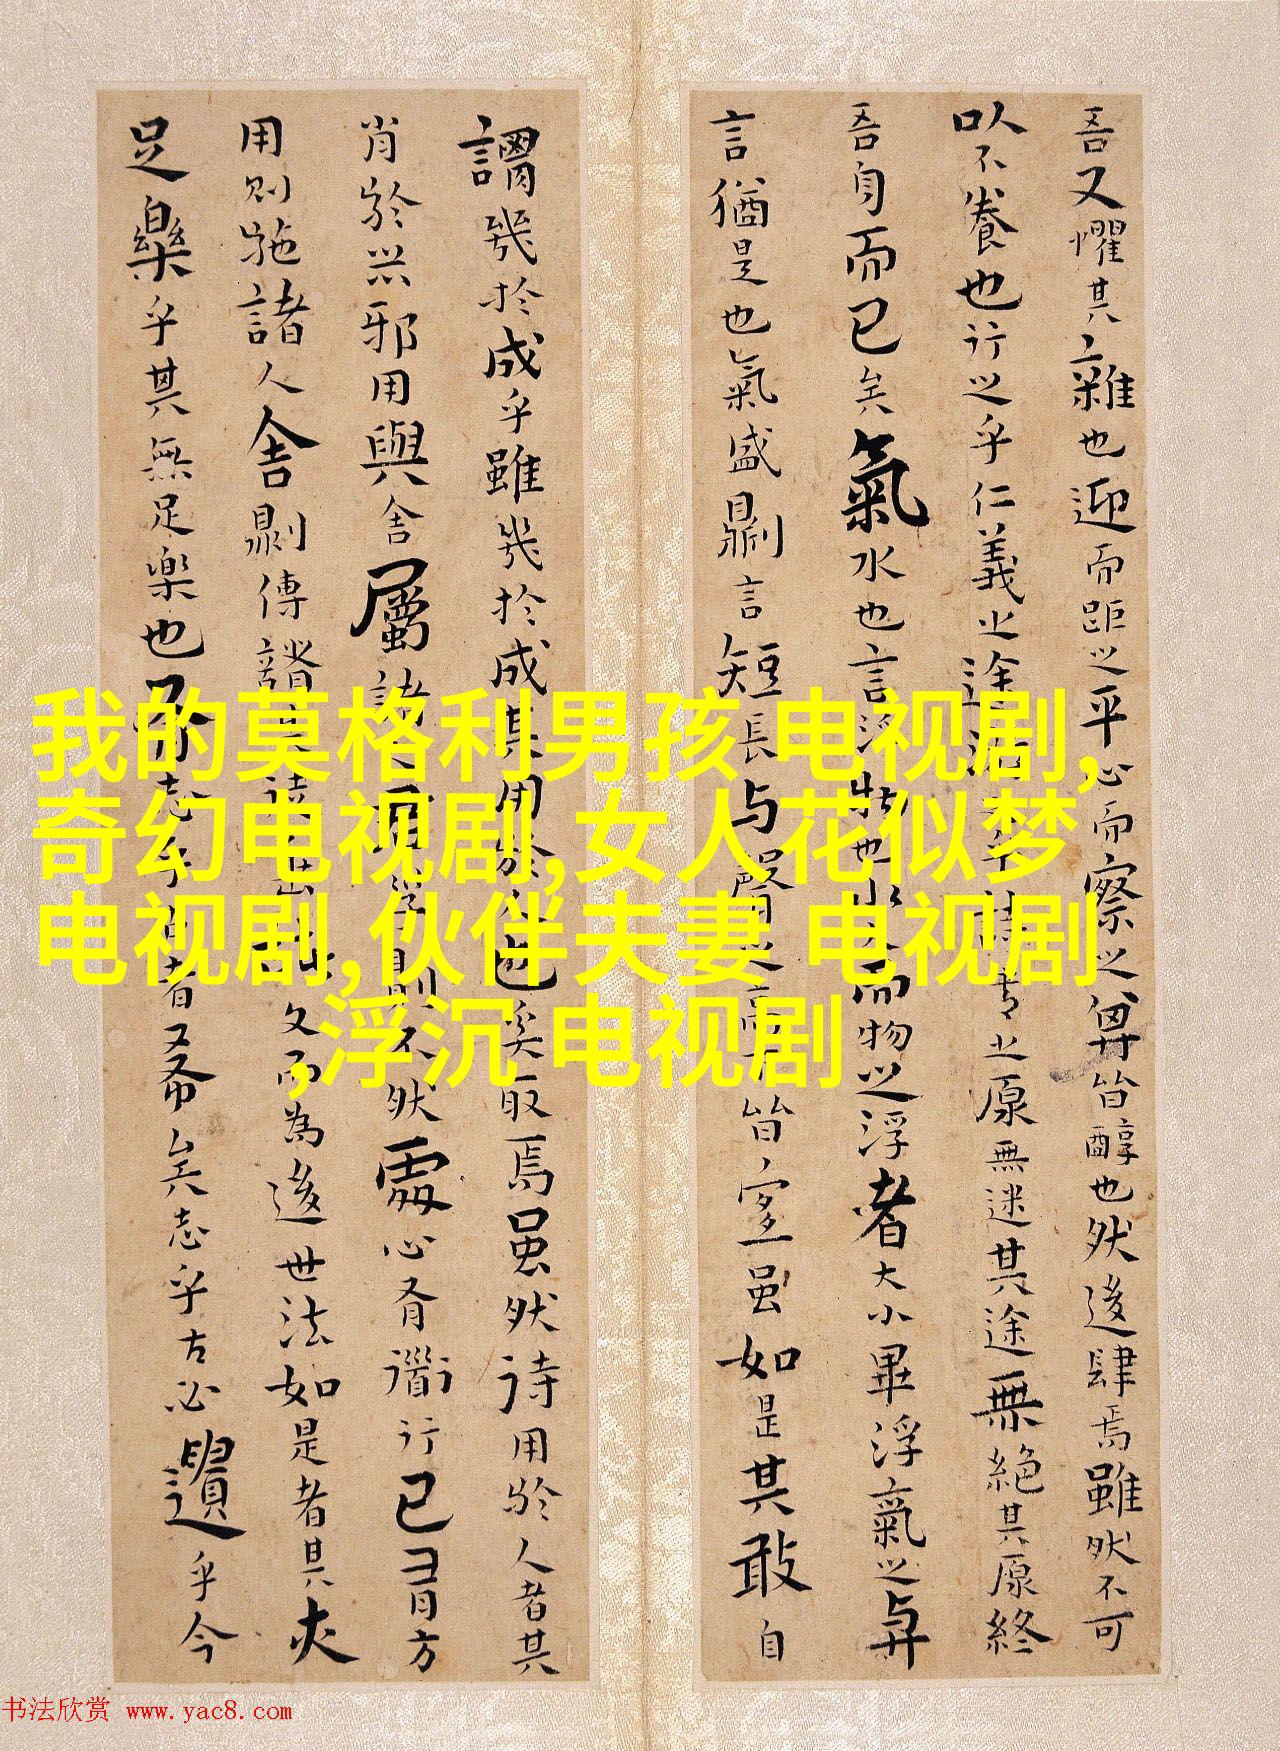 吾又懼其雜也迎而距之平心而察之其皆醇也然後肆焉雖然不可
以不養也行之乎仁義之途游之乎詩書之原無迷其途無絕其原終
吾身而已矣氣水也言浮物也水大而物之浮者大小畢浮氣之與
言猶是也氣盛則言短長與聲之高下皆宜雖如是其敢自
謂幾於成乎雖幾於成其用於人也奚取焉雖然待用於人者其
肖於器邪用與舍屬諸人君子則不然處心有道行己有方
用則施諸人舍則傳諸其徒垂諸文而為後世法如是者其亦
足樂乎其無足樂也有志乎古者希矣志乎古必遺乎今
我的莫格利男孩 电视剧,
奇幻电视剧,女人花似梦
电视剧,伙伴夫妻 电视剧
,浮沉 电视剧
书法欣赏 www.yac8.com